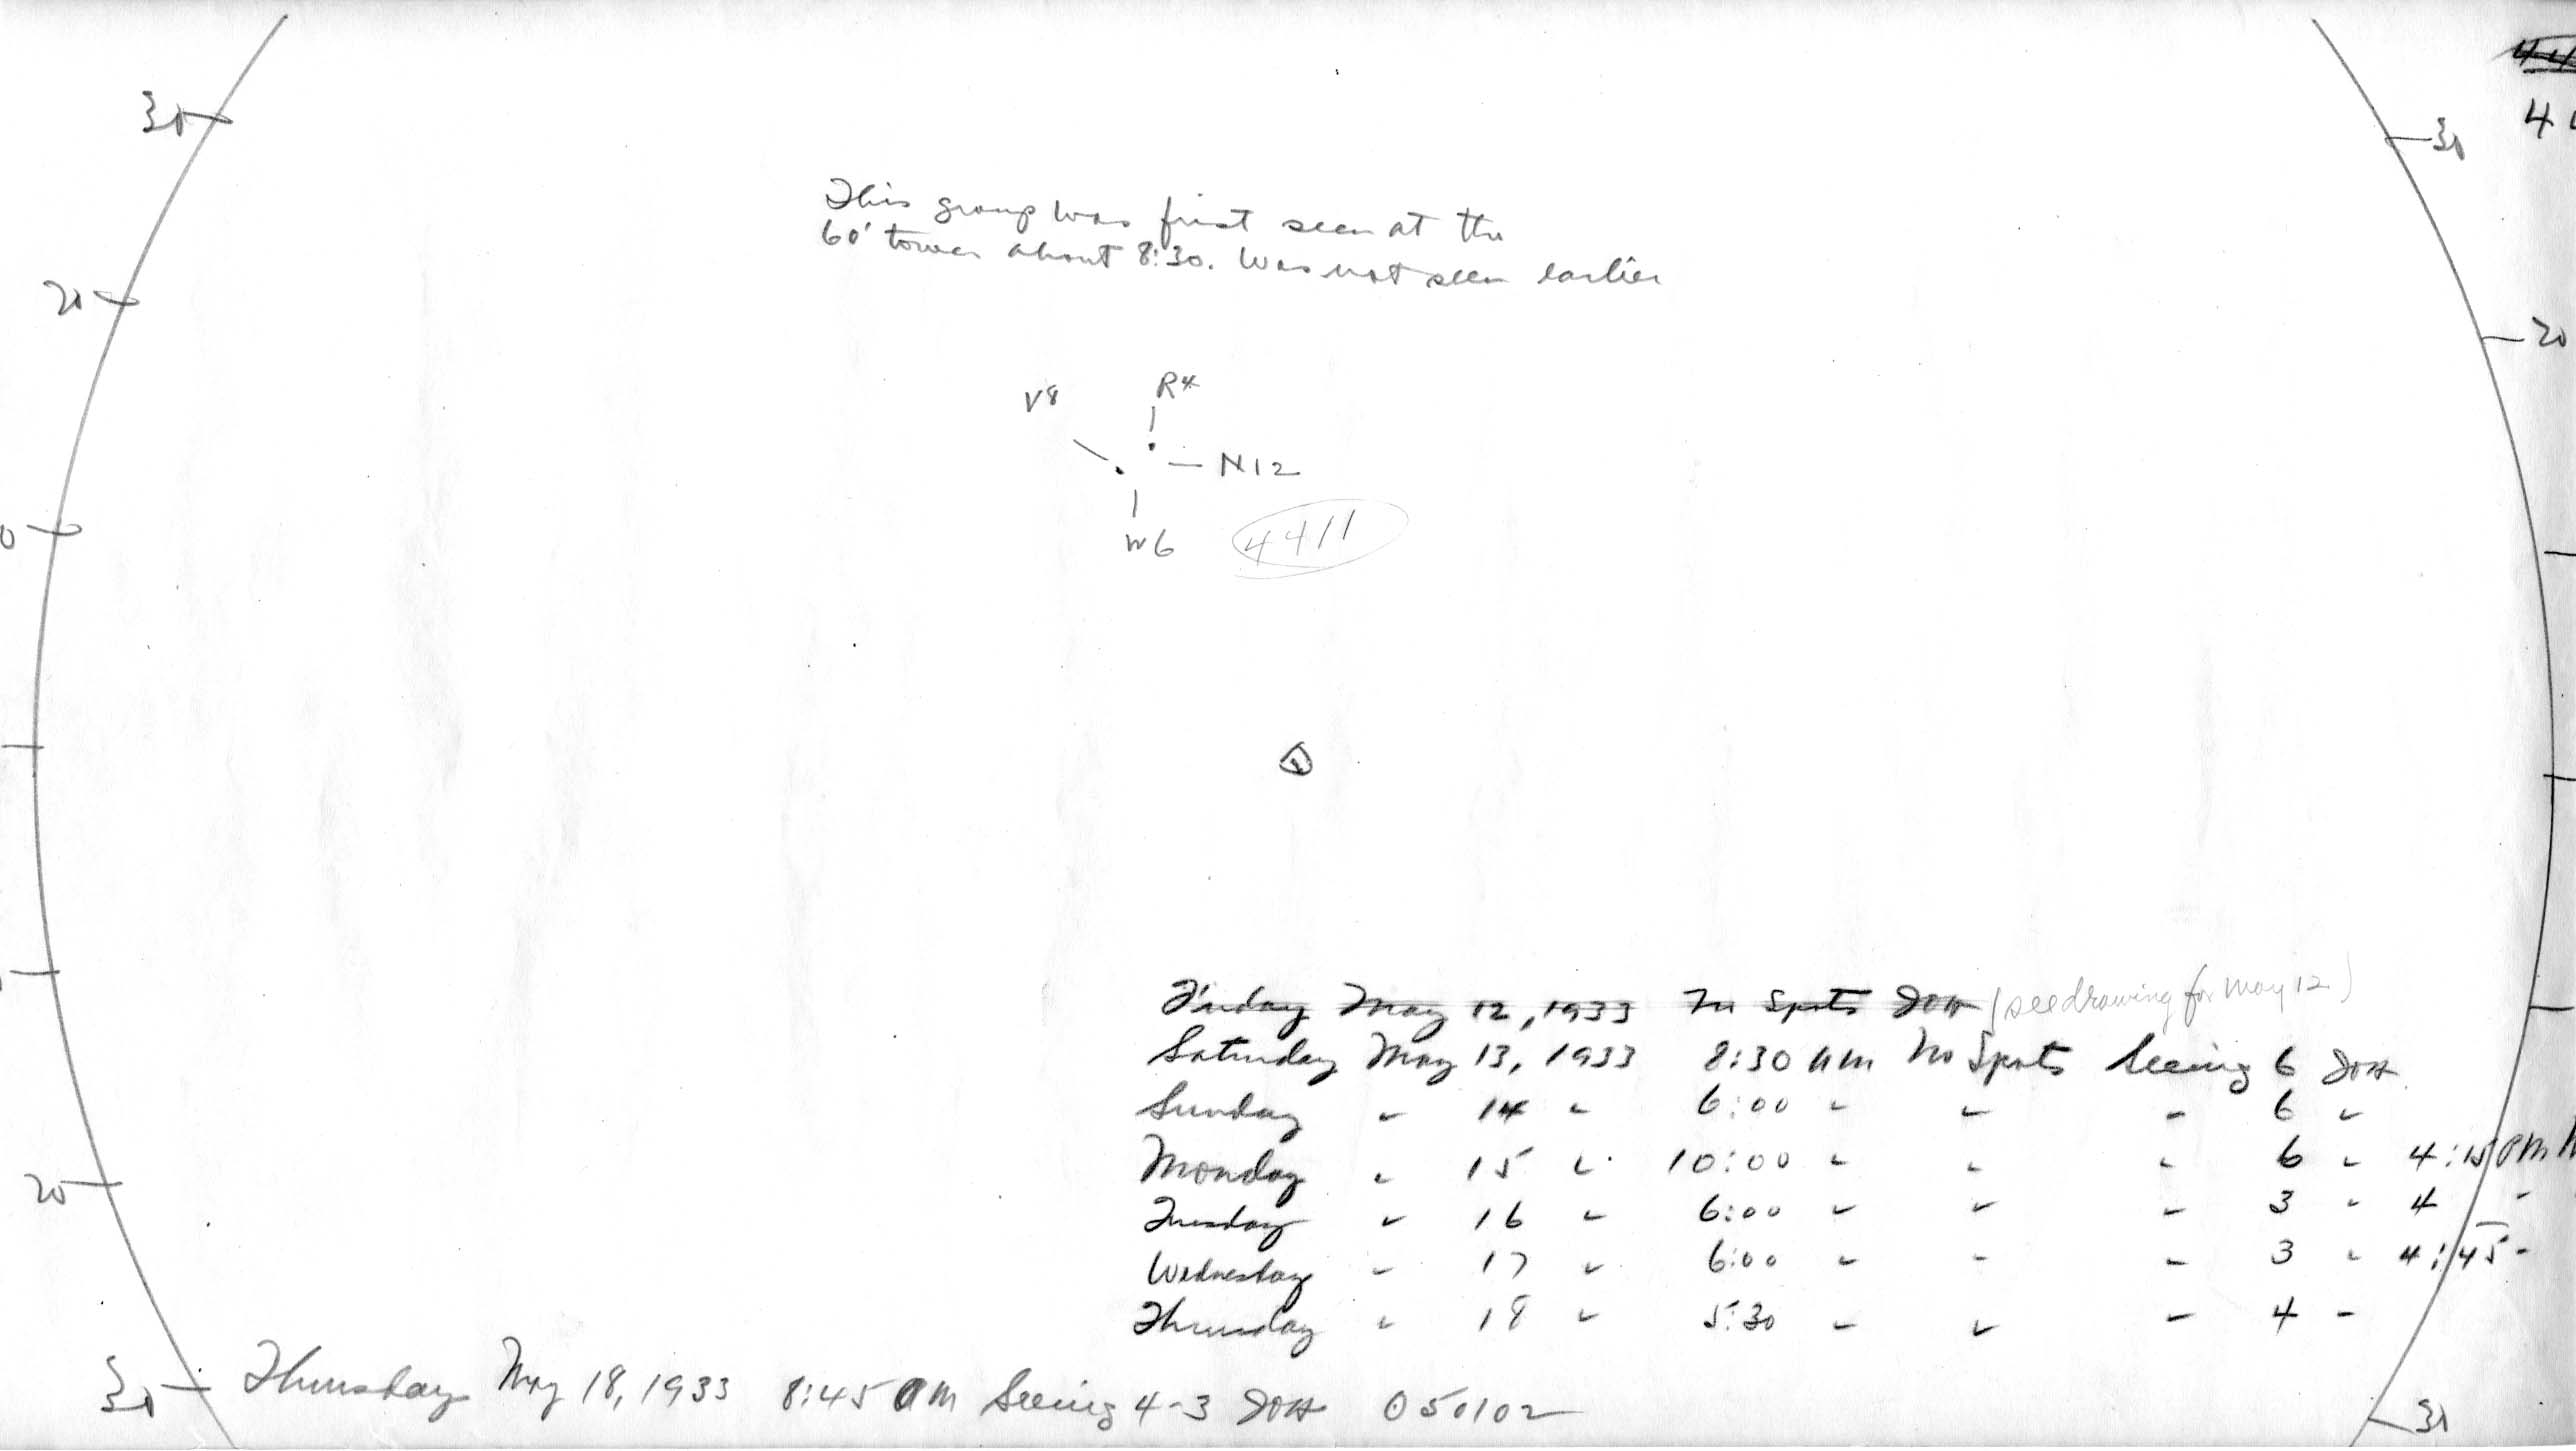 30
30
4
This group was first seen at the
60' tower about 8:30. Was not seen earlier
20
20
V8
R4
N12
W6
4411
0
Friday May 12, 1933 No Spots JOH (see drawing for May 12)
Saturday May 13, 1933 8:30 AM No Spots Seeing 6 JOH
Sunday " 14 " 6:00 " " " 6 "
Monday " 15 " 10:00 " " " 6 " 4:15 PM
Tuesday " 16 " 6:00 " " " 3 " 4 "
Wednesday " 17 " 6:00 " " " 3 " 4:45 "
Thursday " 18 " 5:30 " " " 4 "
20
30
Thursday May 18, 1933 8:45 AM Seeing 4-3 JOH 050102
30